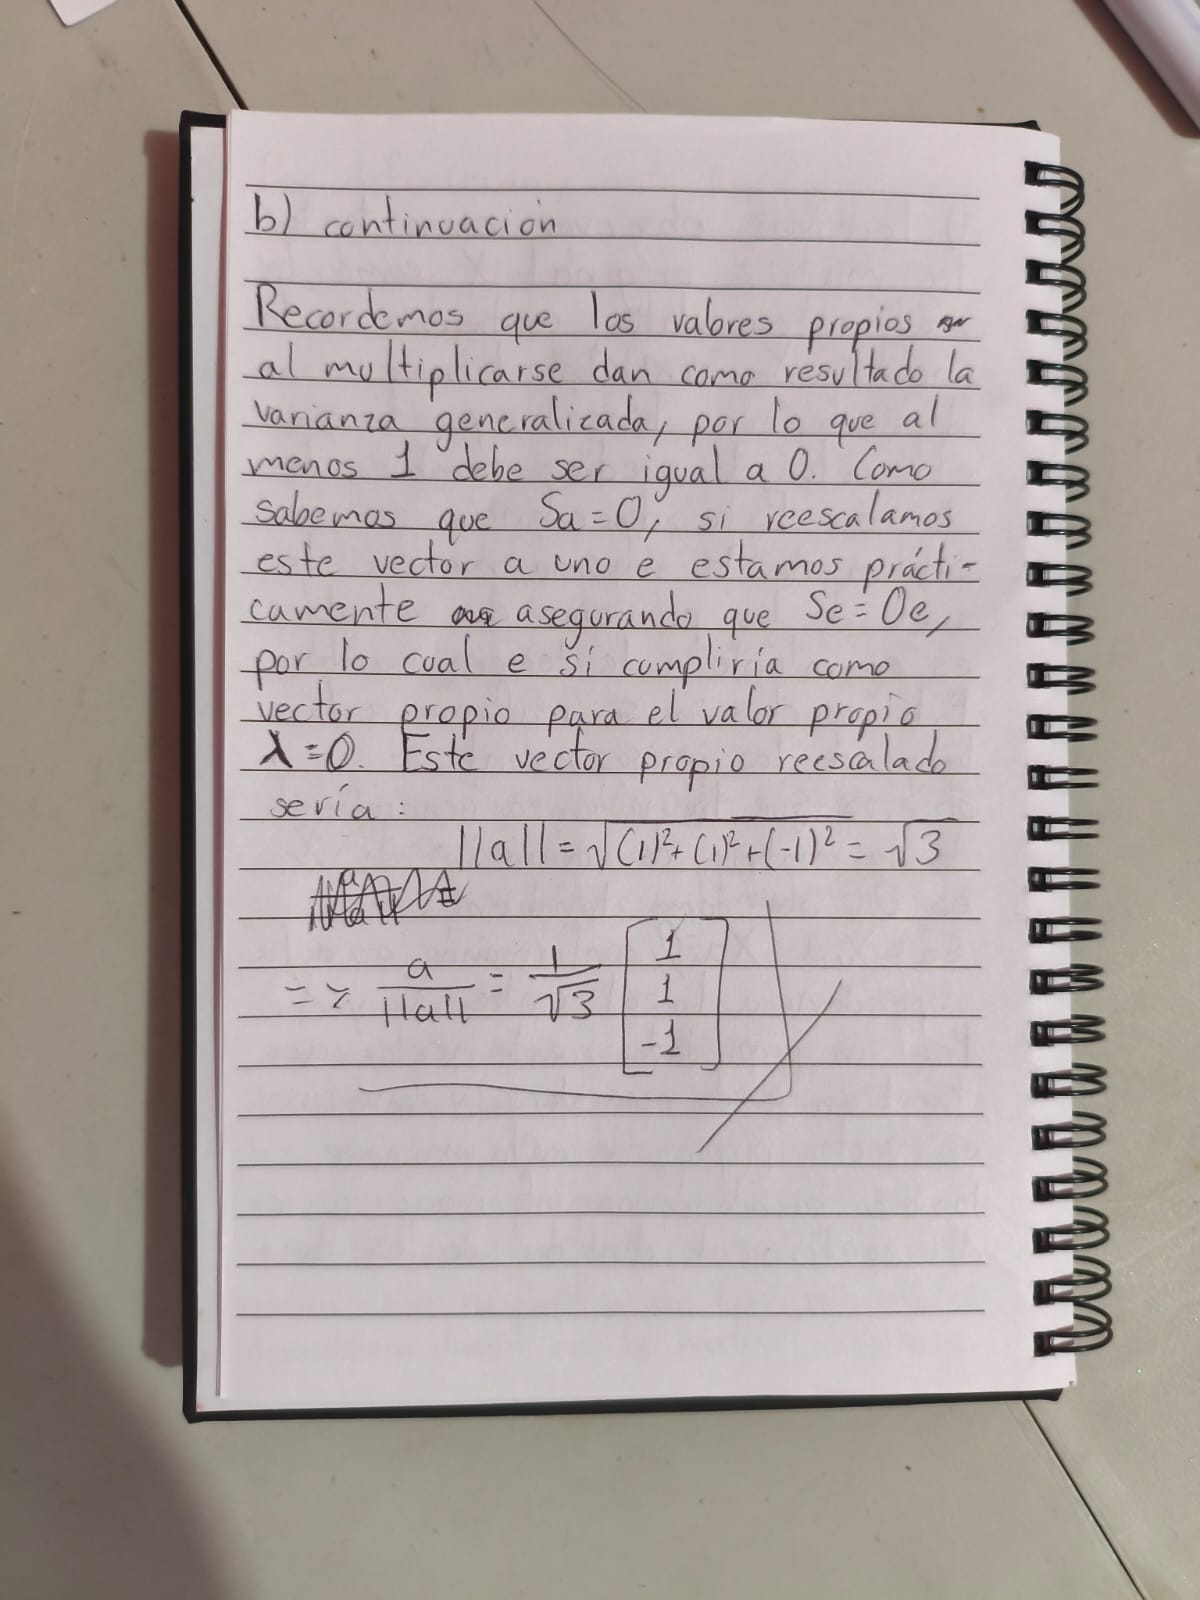 b) continuación
Recordemos que los valores propios
al multiplicarse dan como resultado la
varianza generalizada, por lo que al
menos 1 debe ser igual a 0. Como
sabemos que Sa=0, si reescalamos
este vector a uno e estamos prácti-
camente asegurando que Se=0e,
por lo cual e si cumpliría como
vector propio para el valor propio
λ=0. Este vector propio reescalado
sería:
||a|| = √(1)²+(1)²+(-1)² = √3
=> a/||a|| = 1/√3 [1 1 -1]